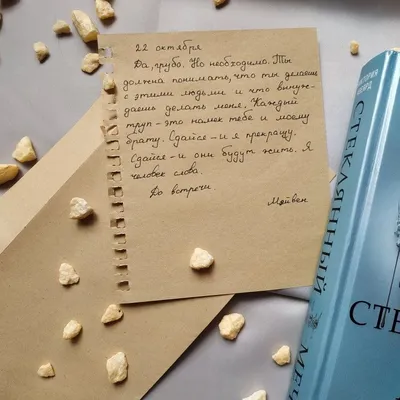 22 октября
Да, грубо. Но необходимо. Ты
должна понимать, что ты делаешь
с этими людьми и что вынуж-
даешь делать меня. Каждый
труп - это намек тебе и моему
брату. Сдайся - и я прекращу.
Сдайся - и они будут жить. Я
человек слова.
До встречи.
Мэйвен
СТЕКЛЯННЫЙ
МЕЧ
СТЕ